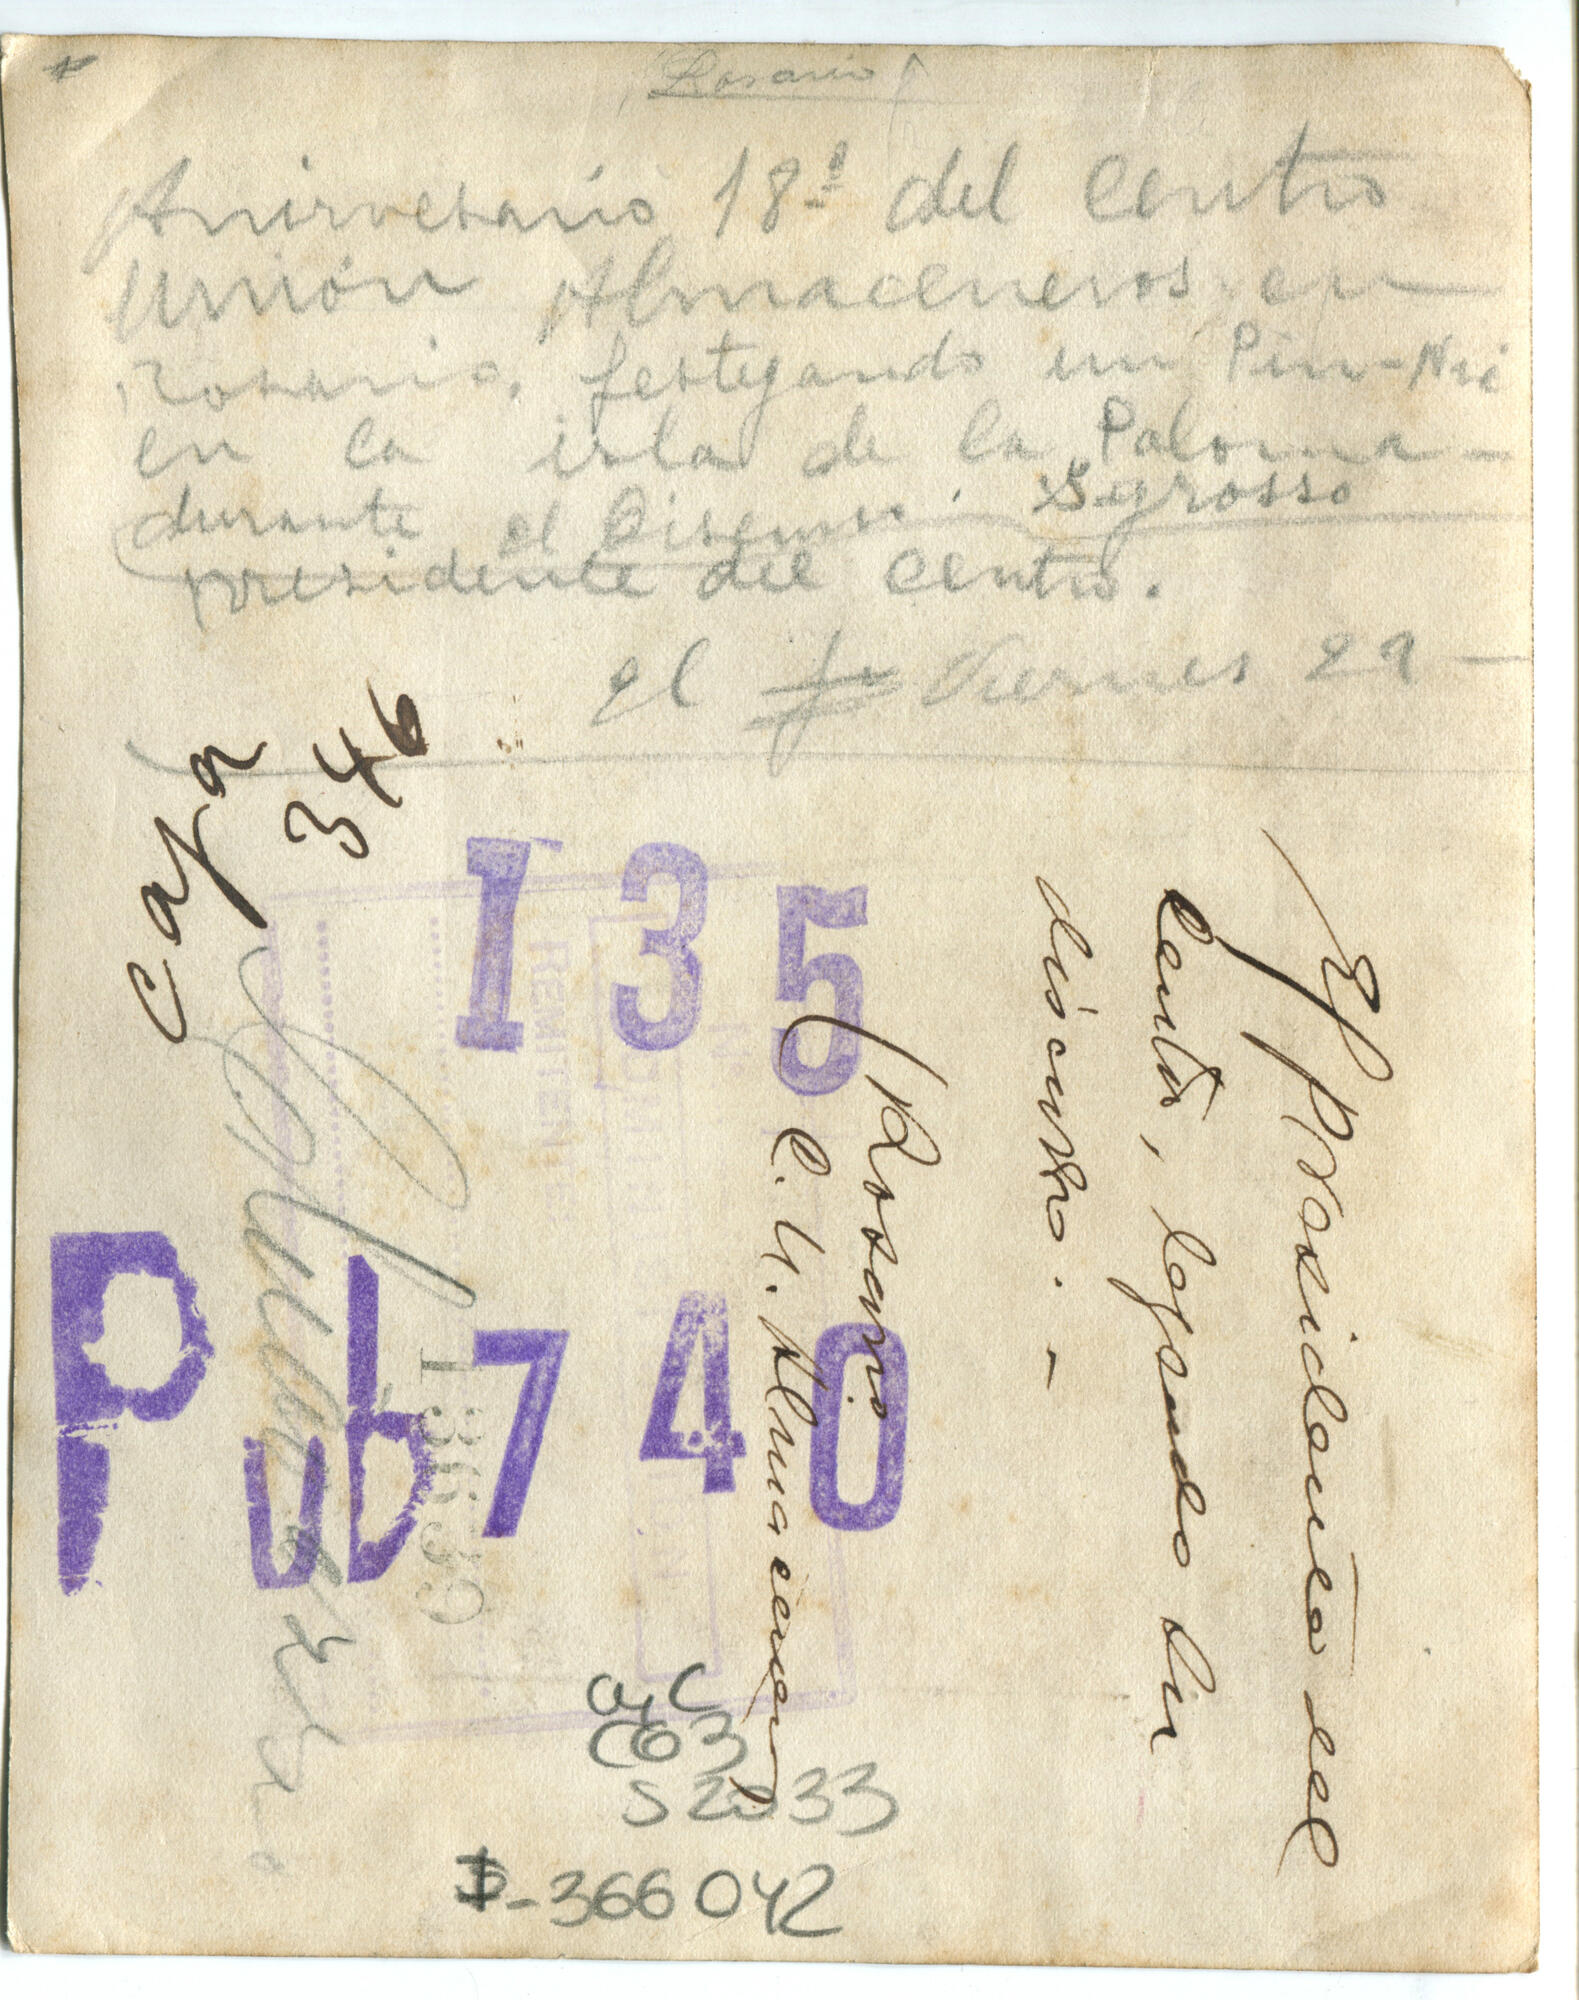 Rosario
Anirvesario 18º del Centro
Unión Almaceneros en
Rosario, festejando un Pin-Nic
en la isla de la Paloma -
durante el Discurso. Sgrosso
presidente del Centro.
el Viernes 29 -
caja
346
135
REMITENTE
Nº
El Presidente del
Centro, leyendo su
discurso. -
Rosario
C. U. Almaceneros
Pub 740
13639
ayC
C63
S2033
I-366042